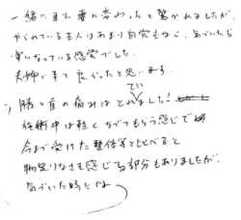 一緒に見た妻に変わったと驚かれましたが、
やられている本人はあまり自覚もなく、気づいたら
楽になっている感覚でした。
夫婦で来て良かったと思います。
腰と首の痛みはとれました!
施術中は軽くさわってもらう感じで
今まで受けた整体等とくらべると
物足りなさも感じる部分もありましたが、
気づいた時には